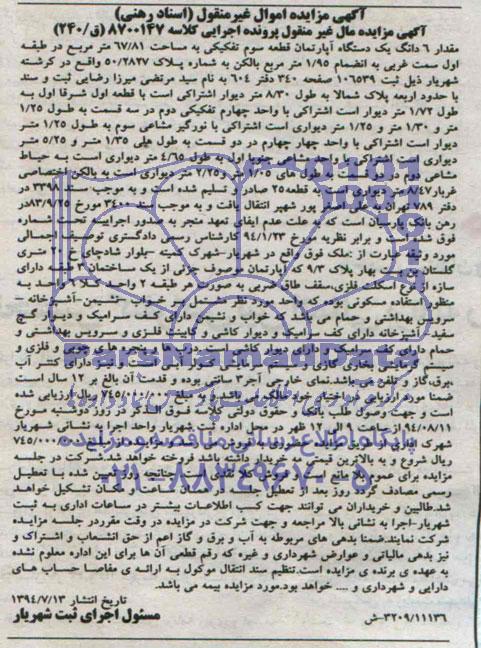 آگهی مزایده اموال غیرمنقول (اسناد رهنی)
آگهی مزایده مال غیر منقول پرونده اجرایی کلاسه ۸۷۰۰۱۴۷ (ق/۲۴۰)
مقدار ۶ دانگ یک دستگاه آپارتمان قطعه سوم تفکیکی به مساحت ۶۷/۸۱ متر مربع در طبقه
اول سمت غربی به انضمام ۱/۹۵ متر مربع بالکن به شماره پلاک ۵۰/۲۸۲۷ واقع در کرشته
شهریار ذیل ثبت ۱۰۶۵۳۹ صفحه ۳۴۰ دفتر ۶۰۴ به نام سید مرتضی میرزا رضایی ثبت و سند
با حدود اربعه پلاک شمالا به طول ۸/۳۰ متر دیوار است اشتراکی است با قطعه اول شرقا اول به
طول ۱/۷۲ متر دیوار است اشتراکی با واحد چهارم تفکیکی دوم در سه قسمت به طول ۱/۲۵
متر و ۱/۳۰ متر و ۱/۲۵ متر دیواری است اشتراکی با نورگیر مشاعی سوم به طول ۱/۲۵ متر
دیوار است اشتراکی با واحد چهار چهارم در دو قسمت به طول های ۱/۳۵ متر و ۵/۲۵ متر
دیواری است اشتراکی با واحد مشاعی جنوبا اول به طول ۴/۶۵ متر دیواری است به حیاط
مشاعی دوم در دو قسمت به طول های ۱/۰۵ متر و ۲/۲۵ متر دیواری است به بالکن اختصاصی
غربا ۸/۴۷ متر دیواری است به قطعه ۲۵ صادر و تسلیم شده است و به موجب سند ۳۳۹۸ در
دفتر ۷۸۹ تهران به علی اصغر پور شهیر انتقال یافت و به موجب سند ۳۴۰۰ مورخ ۸۳/۹/۲۵ در
رهن بانک پارسیان است که به علت عدم ایفای تعهد منجر به صدور اجراییه تحت شماره
فوق شده است و برابر نظریه مورخ ۹۴/۱/۲۳ کارشناس رسمی دادگستری توصیف اجمالی
مورد وثیقه عبارت از :ملک فوق واقع در شهریار-شهرک
گلستان بن بست بهار پلاک ۹/۳ که آپارتمان موصوف جزئی از یک ساختمان ۳ طبقه دارای
سازه از نوع اسکلت فلزی،سقف طاق ضربی به صورت هر طبقه ۲ واحد کلا ۶ واحد به
منظور استفاده مسکونی بوده که واحد مورد نظر مشتمل بر خواب-نشیمن-آشپزخانه-
سرویس بهداشتی و حمام می باشد که خواب و نشیمن دارای کف سرامیک و دیوار گچ
سفید- آشپزخانه دارای کف سرامیک و دیوار کاشی و کابینت فلزی و سرویس بهداشتی و
حمام دارای کف سرامیک و دارای دیوار کاشی است،درب ها و پنجره های چوبی و فلزی و
سیستم گرمایشی بخاری گازی و سیستم سرمایشی کولر آبی است و نیز دارای کنتر آب
،برق،گاز و تلفن می باشد.نمای خارجی آجر ۳ سانتی بوده و قدمت آن بالغ بر ۱۲ سال است
است و جهت وصول طلب بانک و حقوق دولتی کلاسه فوق الذکر در روز دوشنبه مورخ
۹۴/۰۸/۱۱ از ساعت ۹ الی ۱۲ ظهر در محل اداره ثبت شهریار واحد اجرا به نشانی شهریار
ریال شروع و به بالاترین قیمتی که خریدار داشته باشد فروخته خواهد شد.شرکت در جلسه
مزایده برای عموم آزاد است و فروش کلا نقدی است.چنانچه روز تعیین شده با تعطیل
رسمی مصادف گردد روز بعد از تعطیل جلسه در همان ساعت و مکان تشکیل خواهد
شد.طالبین و خریداران می توانند جهت کسب اطلاعات بیشتر در ساعات اداری به ثبت
شهریار-اجرا به نشانی بالا مراجعه و جهت شرکت در مزایده در وقت مقرر در جلسه مزایده
شرکت نمایند.ضمنا بدهی های مربوطه به آب و برق و گاز اعم از حق انشعاب و اشتراک و
نیز بدهی مالیاتی و عوارض شهرداری و غیره که رقم قطعی آن ها برای این اداره معلوم نشده
به عهده ی برنده ی مزایده است.تنظیم سند انتقال موکول به ارائه ی مفاصا حساب های
دارایی و شهرداری و .... خواهد بود.مورد مزایده بیمه می باشد.
تاریخ انتشار ۱۳۹۴/۷/۱۳
۳۲۰۹/۱۱۱۳۶-ش
مسئول اجرای ثبت شهریار
ParsNamadData.com
پایگاه اطلاع رسانی مناقصه و مزایده
۰۲۱-۸۸۳۴۹۶۷۰-۵